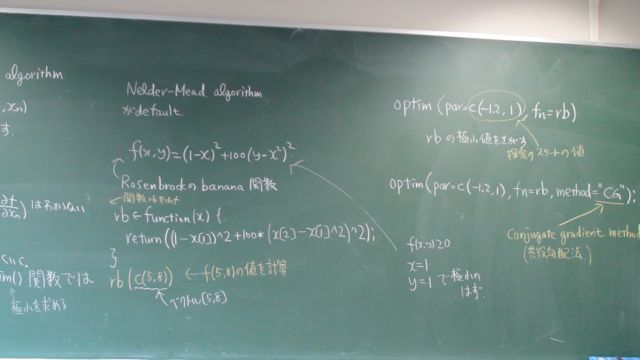 algorithm
,xn)
す.
∂f
∂xn
) はわからない
関数では
極小を求める
Nelder-Mead algorithm
がdefault.
f(x,y)=(1-x)²+100(y-x²)²
Rosenbrockのbanana関数
関数rbをdef
rb←function(x) {
return((1-x[1])^2+100*(x[2]-x[1]^2)^2);
}
rb(c(5,8)) ←f(5,8)の値を計算
ベクトル[5,8]
optim (par=c(-1.2, 1), fn=rb)
rbの極小値をさがす
探索のスタートの値
optim(par=c(-1.2,1), fn=rb, method="CG");
Conjugate gradient method
(共役勾配法)
f(x,y)≥0
x=1
y=1 で極小の
はず.